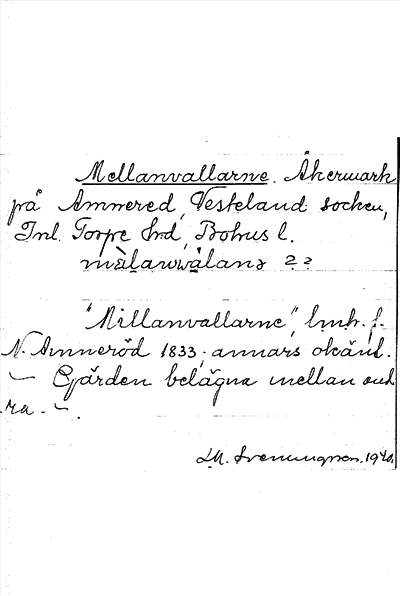 Mellanvallarne. Åkermark
på Amnered, Vesteland socken,
Inl. Torpe hrd, Bohus l.
målanvvalanz 2 2
"Millanvallarne", lmh. f.
N. Amneröd 1833; annars okänt.
— Gärden belägna mellan and
ra. —.
LM. Svenungsson. 1940.